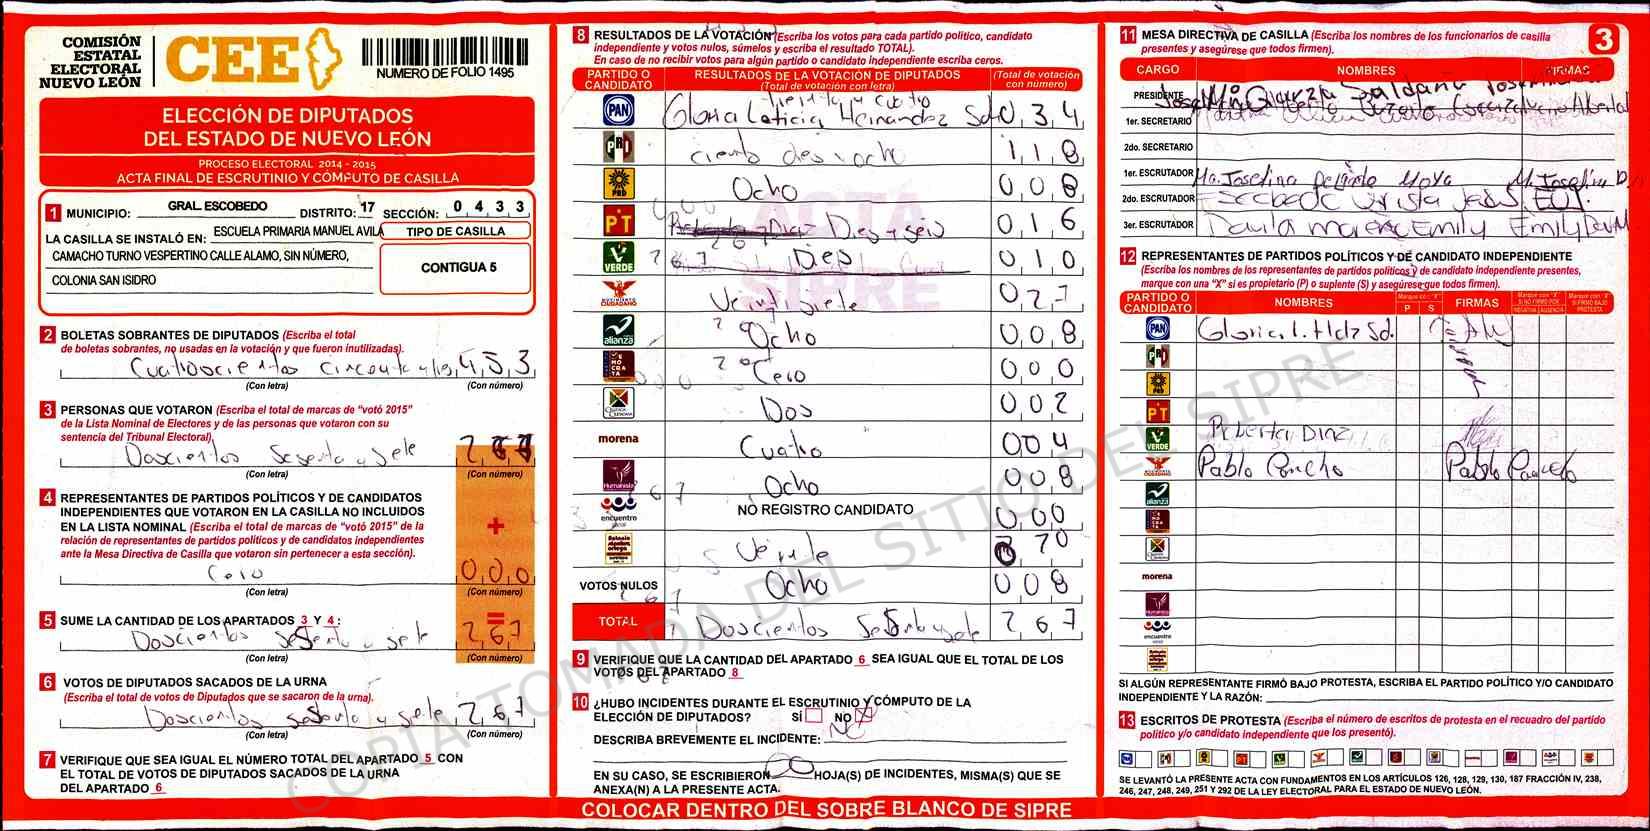 COMISIÓN
ESTATAL
ELECTORAL
NUEVO LEÓN
CEE
NUMERO DE FOLIO 1495
ELECCIÓN DE DIPUTADOS
DEL ESTADO DE NUEVO LEÓN
PROCESO ELECTORAL 2014 - 2015
ACTA FINAL DE ESCRUTINIO Y CÓMPUTO DE CASILLA
1 MUNICIPIO: GRAL ESCOBEDO DISTRITO: 17 SECCIÓN: 0 4 3 3
LA CASILLA SE INSTALÓ EN: ESCUELA PRIMARIA MANUEL AVILA
CAMACHO TURNO VESPERTINO CALLE ALAMO, SIN NÚMERO,
COLONIA SAN ISIDRO
TIPO DE CASILLA
CONTIGUA 5
2 BOLETAS SOBRANTES DE DIPUTADOS (Escriba el total
de boletas sobrantes, no usadas en la votación y que fueron inutilizadas).
Cuatroscientos cincuenta y tres 4 5 3
(Con letra) (Con número)
3 PERSONAS QUE VOTARON (Escriba el total de marcas de "votó 2015"
de la Lista Nominal de Electores y de las personas que votaron con su
sentencia del Tribunal Electoral).
Doscientos Sesenta y siete 2 6 7
(Con letra) (Con número)
4 REPRESENTANTES DE PARTIDOS POLÍTICOS Y DE CANDIDATOS
INDEPENDIENTES QUE VOTARON EN LA CASILLA NO INCLUIDOS
EN LA LISTA NOMINAL (Escriba el total de marcas de "votó 2015" de la
relación de representantes de partidos políticos y de candidatos independientes
ante la Mesa Directiva de Casilla que votaron sin pertenecer a esta sección).
+
Cero 0 0 0
(Con letra) (Con número)
5 SUME LA CANTIDAD DE LOS APARTADOS 3 Y 4 : =
Doscientos sesenta y siete 2 6 7
(Con letra) (Con número)
6 VOTOS DE DIPUTADOS SACADOS DE LA URNA
(Escriba el total de votos de Diputados que se sacaron de la urna).
Doscientos sesenta y siete 2 6 7
(Con letra) (Con número)
7 VERIFIQUE QUE SEA IGUAL EL NÚMERO TOTAL DEL APARTADO 5 CON
EL TOTAL DE VOTOS DE DIPUTADOS SACADOS DE LA URNA
DEL APARTADO 6
8 RESULTADOS DE LA VOTACIÓN (Escriba los votos para cada partido político, candidato
independiente y votos nulos, súmelos y escriba el resultado TOTAL).
En caso de no recibir votos para algún partido o candidato independiente escriba ceros.
PARTIDO O CANDIDATO RESULTADOS DE LA VOTACIÓN DE DIPUTADOS (Total de votación con letra) (Total de votación con número)
treinta y cuatro
PAN Gloria Leticia Hernandez Sd 0 3 4
PRI ciento dieciocho 1 1 8
PRD Ocho 0 0 8
PT Diez y seis 0 1 6
VERDE Diez 0 1 0
MOVIMIENTO CIUDADANO Veintisiete 0 2 7
alianza Ocho 0 0 8
DEMOCRATA Cero 0 0 0
CRUZADA CIUDADANA Dos 0 0 2
morena Cuatro 0 0 4
Humanista Ocho 0 0 8
encuentro social NO REGISTRO CANDIDATO 0 0 0
Veinte 20
VOTOS NULOS Ocho 0 0 8
TOTAL Doscientos Sesenta y siete 2 6 7
9 VERIFIQUE QUE LA CANTIDAD DEL APARTADO 6 SEA IGUAL QUE EL TOTAL DE LOS
VOTOS DEL APARTADO 8
10 ¿HUBO INCIDENTES DURANTE EL ESCRUTINIO Y CÓMPUTO DE LA
ELECCIÓN DE DIPUTADOS? SÍ NO X
DESCRIBA BREVEMENTE EL INCIDENTE: NO
EN SU CASO, SE ESCRIBIERON HOJA(S) DE INCIDENTES, MISMA(S) QUE SE
ANEXA(N) A LA PRESENTE ACTA.
COLOCAR DENTRO DEL SOBRE BLANCO DE SIPRE
11 MESA DIRECTIVA DE CASILLA (Escriba los nombres de los funcionarios de casilla
presentes y asegúrese que todos firmen).
3
CARGO NOMBRES FIRMAS
PRESIDENTE Jose Mº Garza Saldaña
1er. SECRETARIO
2do. SECRETARIO
1er. ESCRUTADOR Ma. Josefina Moya M. Josefina
2do. ESCRUTADOR
3er. ESCRUTADOR Davila Moreno Emily Emily
12 REPRESENTANTES DE PARTIDOS POLÍTICOS Y DE CANDIDATO INDEPENDIENTE
(Escriba los nombres de los representantes de partidos políticos y de candidato independiente presentes,
marque con una "X" si es propietario (P) o suplente (S) y asegúrese que todos firmen).
PARTIDO O CANDIDATO NOMBRES Marque con "X" P S FIRMAS Marque con "X" SI NO FIRMÓ POR NEGATIVA AUSENCIA Marque con "X" SI FIRMÓ BAJO PROTESTA
PAN Gloria L. Hdz Sd.
PRI
PRD
PT
VERDE Roberta Diaz
Pablo Poncho Pablo
alianza
morena
Humanista
encuentro social
SI ALGÚN REPRESENTANTE FIRMÓ BAJO PROTESTA, ESCRIBA EL PARTIDO POLÍTICO Y/O CANDIDATO
INDEPENDIENTE Y LA RAZÓN:
13 ESCRITOS DE PROTESTA (Escriba el número de escritos de protesta en el recuadro del partido
político y/o candidato independiente que los presentó).
SE LEVANTÓ LA PRESENTE ACTA CON FUNDAMENTOS EN LOS ARTÍCULOS 126, 128, 129, 130, 187 FRACCIÓN IV, 238,
246, 247, 248, 249, 251 Y 292 DE LA LEY ELECTORAL PARA EL ESTADO DE NUEVO LEÓN.
ACTA
SIPRE
COPIA TOMADA DEL SITIO DEL SIPRE